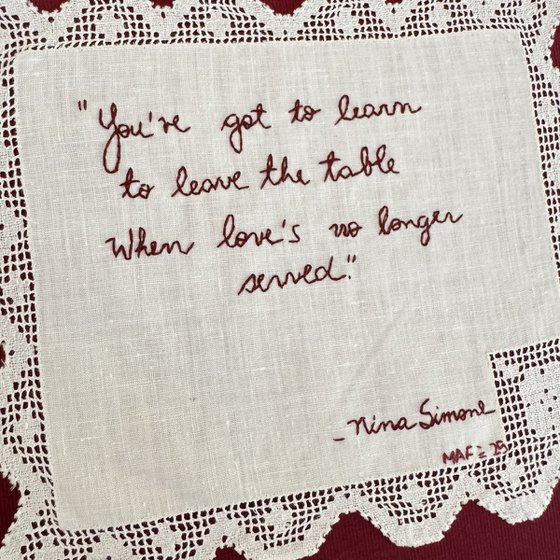 "You've got to learn
to leave the table
When love's no longer
served."
- Nina Simone